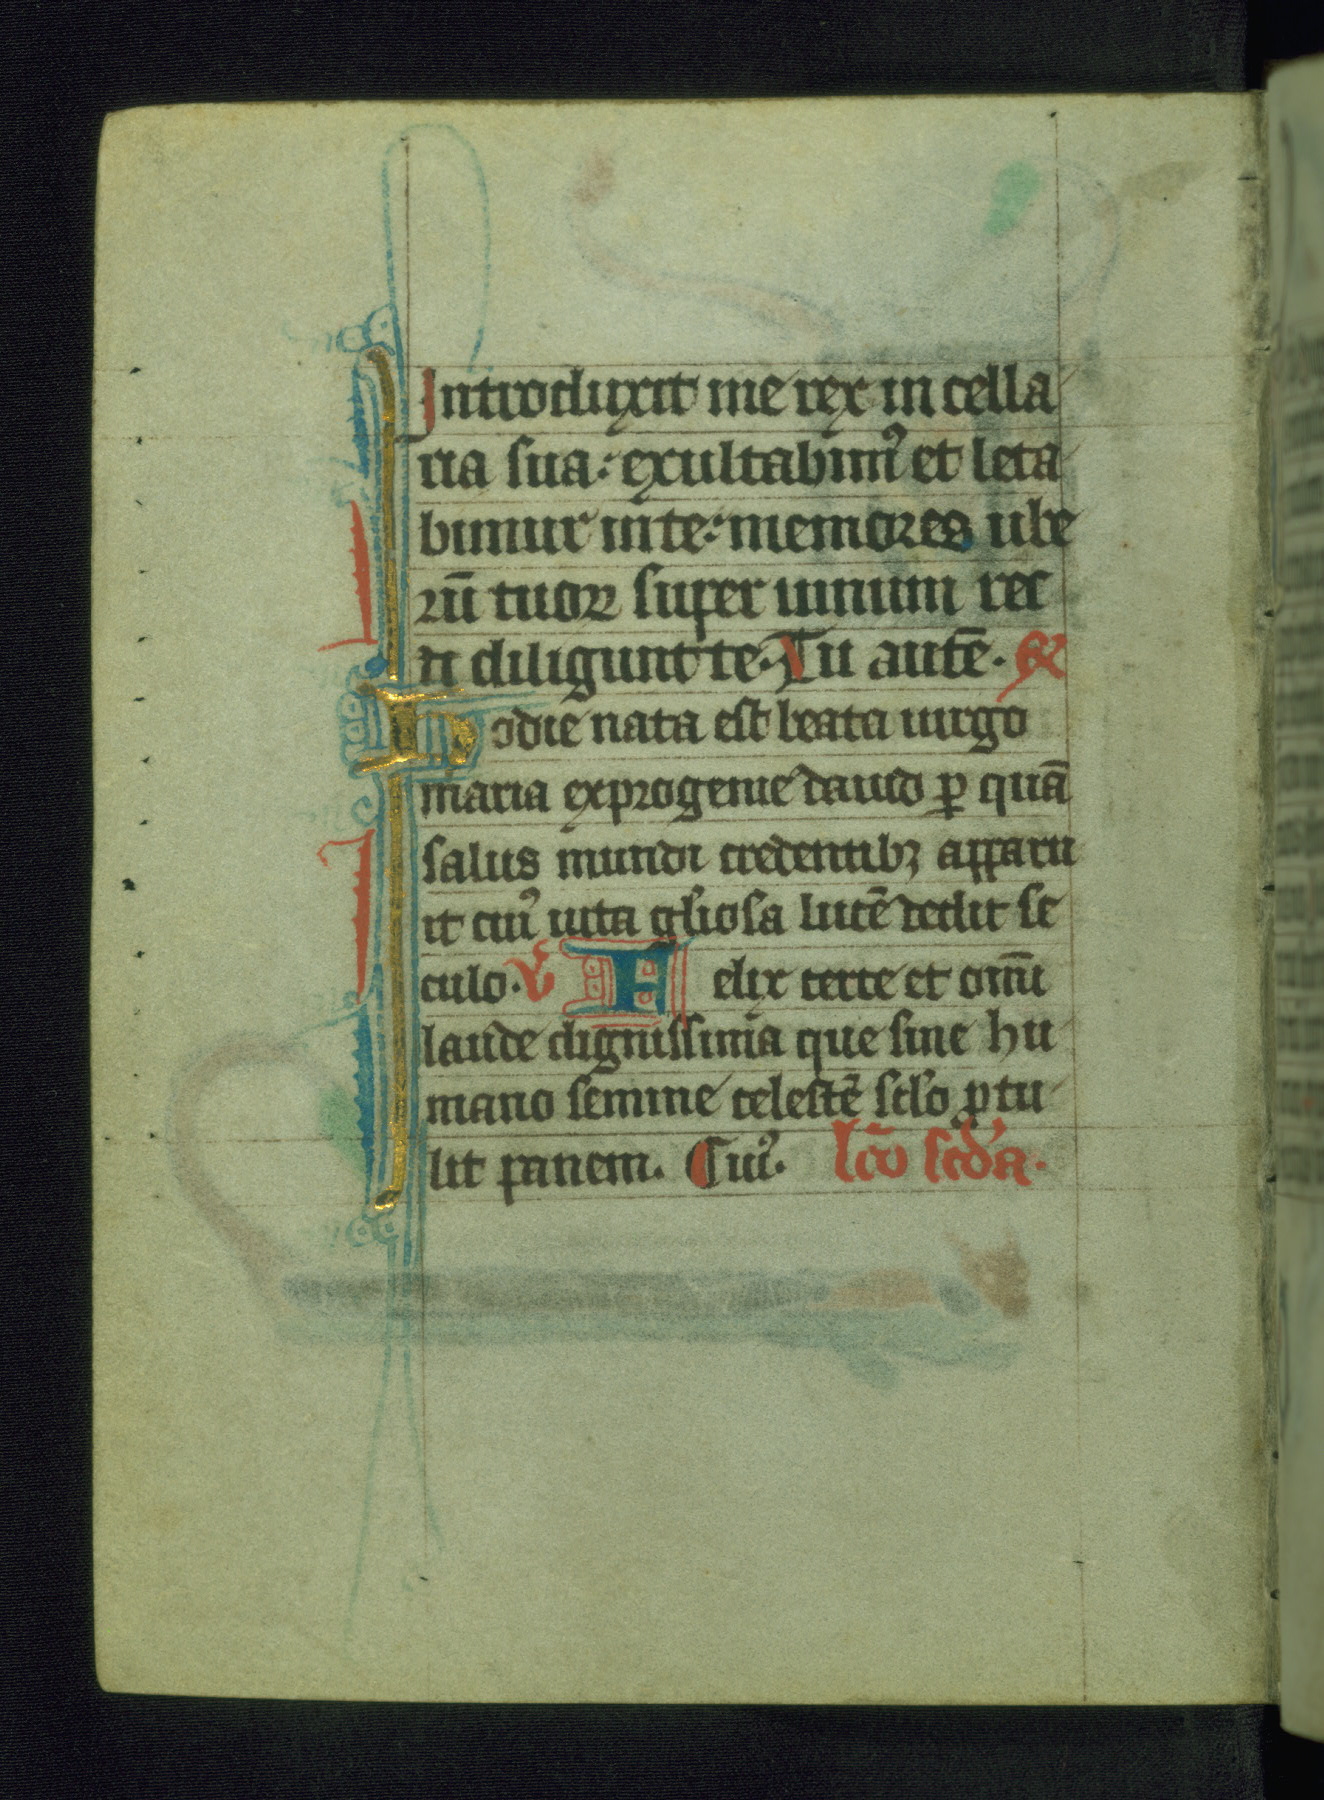 Introduxit me rex in cella
ria sua: exultabimꝰ et leta
bimur in te: memores ube
rū tuoꝝ super uinum rec
ti diligunt te. Tu autē. ℞
Hodie nata est beata uirgo
maria ex progenie dauid ꝑ quā
salus mundi credentibꝫ apparu
it cuiꝰ uita gl'iosa lucē dedit se
culo. ℣ Felix certe et omī
laude dignissima que sine hu
mano semine celestē sclo ꝓtu
lit panem. Cuiꝰ. lc̄o scd'a.